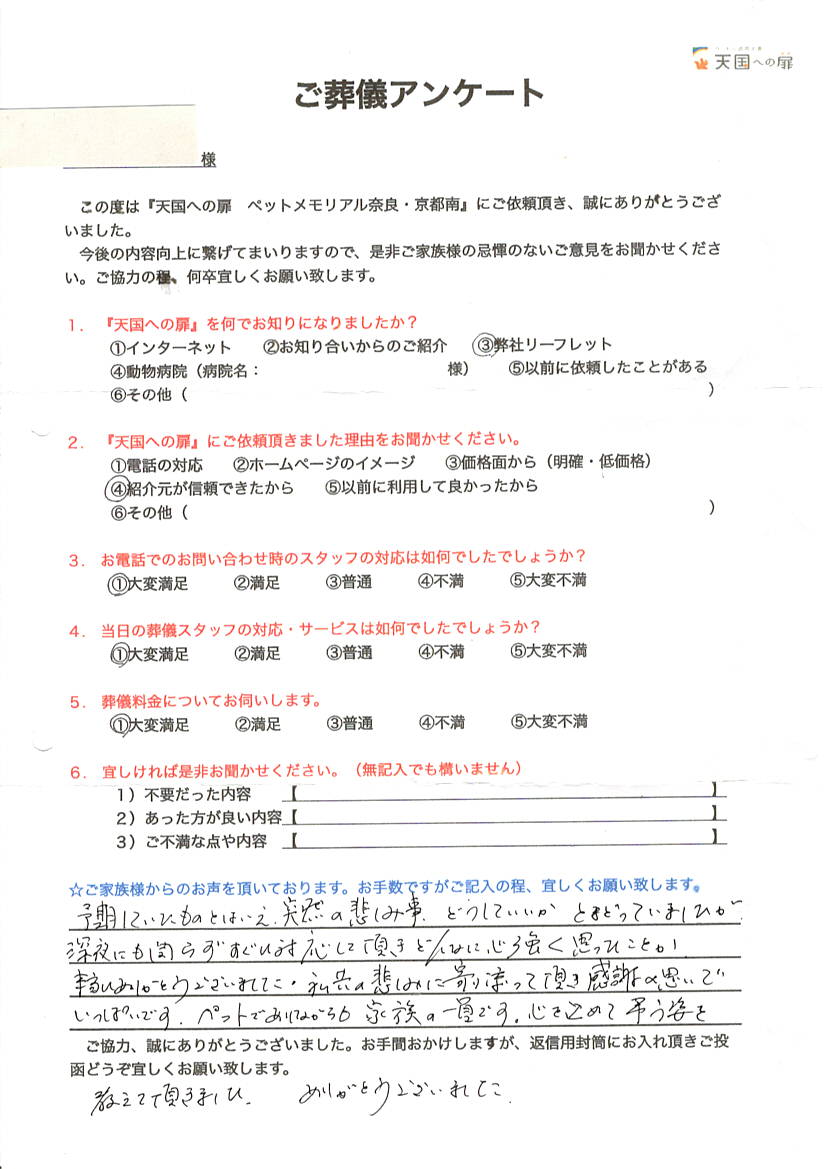 天国への扉
ご葬儀アンケート
様
この度は『天国への扉　ペットメモリアル奈良・京都南』にご依頼頂き、誠にありがとうござ
いました。
今後の内容向上に繋げてまいりますので、是非ご家族様の忌憚のないご意見をお聞かせくださ
い。ご協力の程、何卒宜しくお願い致します。
1．『天国への扉』を何でお知りになりましたか？
①インターネット　②お知り合いからのご紹介　③弊社リーフレット
④動物病院（病院名：　様）　⑤以前に依頼したことがある
⑥その他（　）
2．『天国への扉』にご依頼頂きました理由をお聞かせください。
①電話の対応　②ホームページのイメージ　③価格面から（明確・低価格）
④紹介元が信頼できたから　⑤以前に利用して良かったから
⑥その他（　）
3．お電話でのお問い合わせ時のスタッフの対応は如何でしたでしょうか？
①大変満足　②満足　③普通　④不満　⑤大変不満
4．当日の葬儀スタッフの対応・サービスは如何でしたでしょうか？
①大変満足　②満足　③普通　④不満　⑤大変不満
5．葬儀料金についてお伺いします。
①大変満足　②満足　③普通　④不満　⑤大変不満
6．宜しければ是非お聞かせください。（無記入でも構いません）
1）不要だった内容　【　】
2）あった方が良い内容【　】
3）ご不満な点や内容　【　】
☆ご家族様からのお声を頂いております。お手数ですがご記入の程、宜しくお願い致します。
予期していたものとはいえ、突然の悲しみ事、どうしていいか とまどっていましたが
深夜にも関らずすぐに対応して頂き どんなに心強く思ったことか
ありがとうございました。私共の悲しみに寄り添って頂き感謝の思いで
いっぱいです。ペットでありながらも 家族の一員です。心を込めて 弔う姿を
ご協力、誠にありがとうございました。お手間おかけしますが、返信用封筒にお入れ頂きご投
函どうぞ宜しくお願い致します。
教えて頂きました。　ありがとうございました。